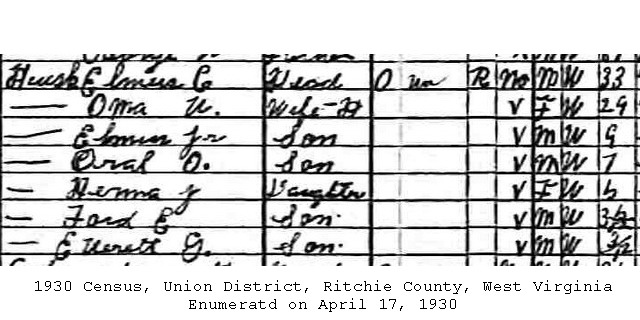 Husk Elmus C Head O un R No M W 33
— Oma U. Wife-H V F W 29
— Elmus Jr Son V M W 9
— Oral O. Son V M W 7
— Herma J Daughter V F W 6
— Ford E Son. V M W
— Everett G. Son. V M W
1930 Census, Union District, Ritchie County, West Virginia
Enumeratd on April 17, 1930